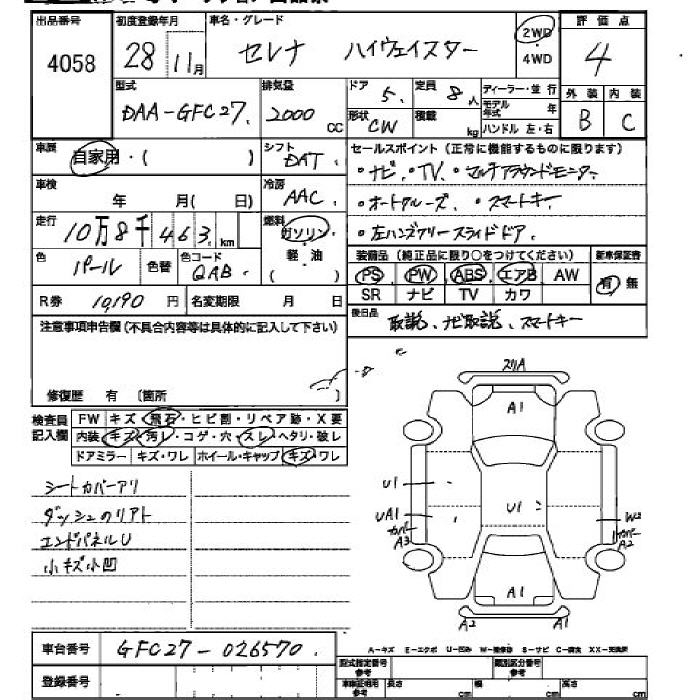 出品番号 初度登録年月 車名・グレード 2WD 評価点
4058 28 11月 セレナ ハイウェイスター ・4WD 4
型式 排気量 ドア 5. 定員 8人 ディーラー・並行 外装 内装
DAA-GFC27. 2000cc 形状 CW 積載 kg モデル年式 年 B C
ハンドル 左・右
車歴 自家用・( ) シフト DAT. セールスポイント (正常に機能するものに限ります)
車検 年 月( 日) 冷房 AAC. ・ナビ. ・TV. ・マルチアラウンドモニター
走行 10万8千463km 燃料 ガソリン・軽・油 ( ) ・オートクルーズ. ・スマートキー
・左ハンズフリースライドドア.
色 パール 色替 色コード QAB. 装備品 (純正品に限り○をつけてください) 新車保証書
PS PW ABS エアB AW 有・無
R券 10,190円 名変期限 月 日 SR ナビ TV カワ
注意事項申告欄 (不具合内容等は具体的に記入して下さい) 後日品 取説、ナビ取説、スマートキー
修復歴 有 〔箇所 〕
検査員記入欄 FW キズ・飛石・ヒビ割・リペア跡・X要
内装 キズ・汚レ・コゲ・穴・スレ・ヘタリ・破レ
ドアミラー キズ・ワレ ホイール・キャップ キズ・ワレ
シートカバーアリ
ダッシュのリアト
エンドパネルU
小キズ小凹
スリA
A1
U1
UA1
カバー
A3
U1
W2
カバー
A2
A1
A2 A1
車台番号 GFC27-026570.
A-キズ E-エクボ U-凹み W-補修跡 S-サビ C-腐食 XX-交換済
登録番号 型式指定番号 参考 類別区分番号 参考
車検証記載 参考 長さ cm 幅 cm 高さ cm